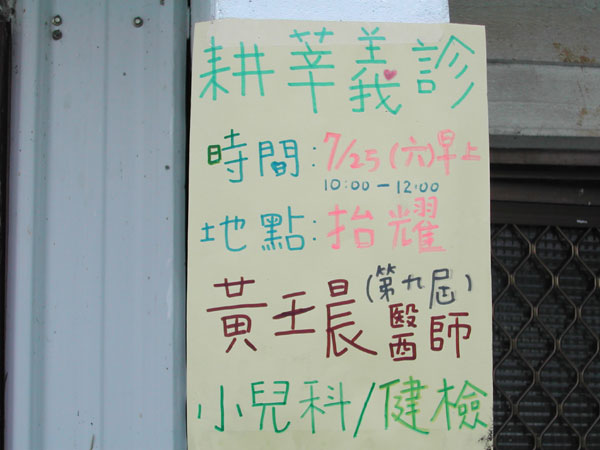 耕莘義診
時間:7/25(六)早上
10:00-12:00
地點:抬耀
(第九屆)
黃壬晨醫師
小兒科/健檢